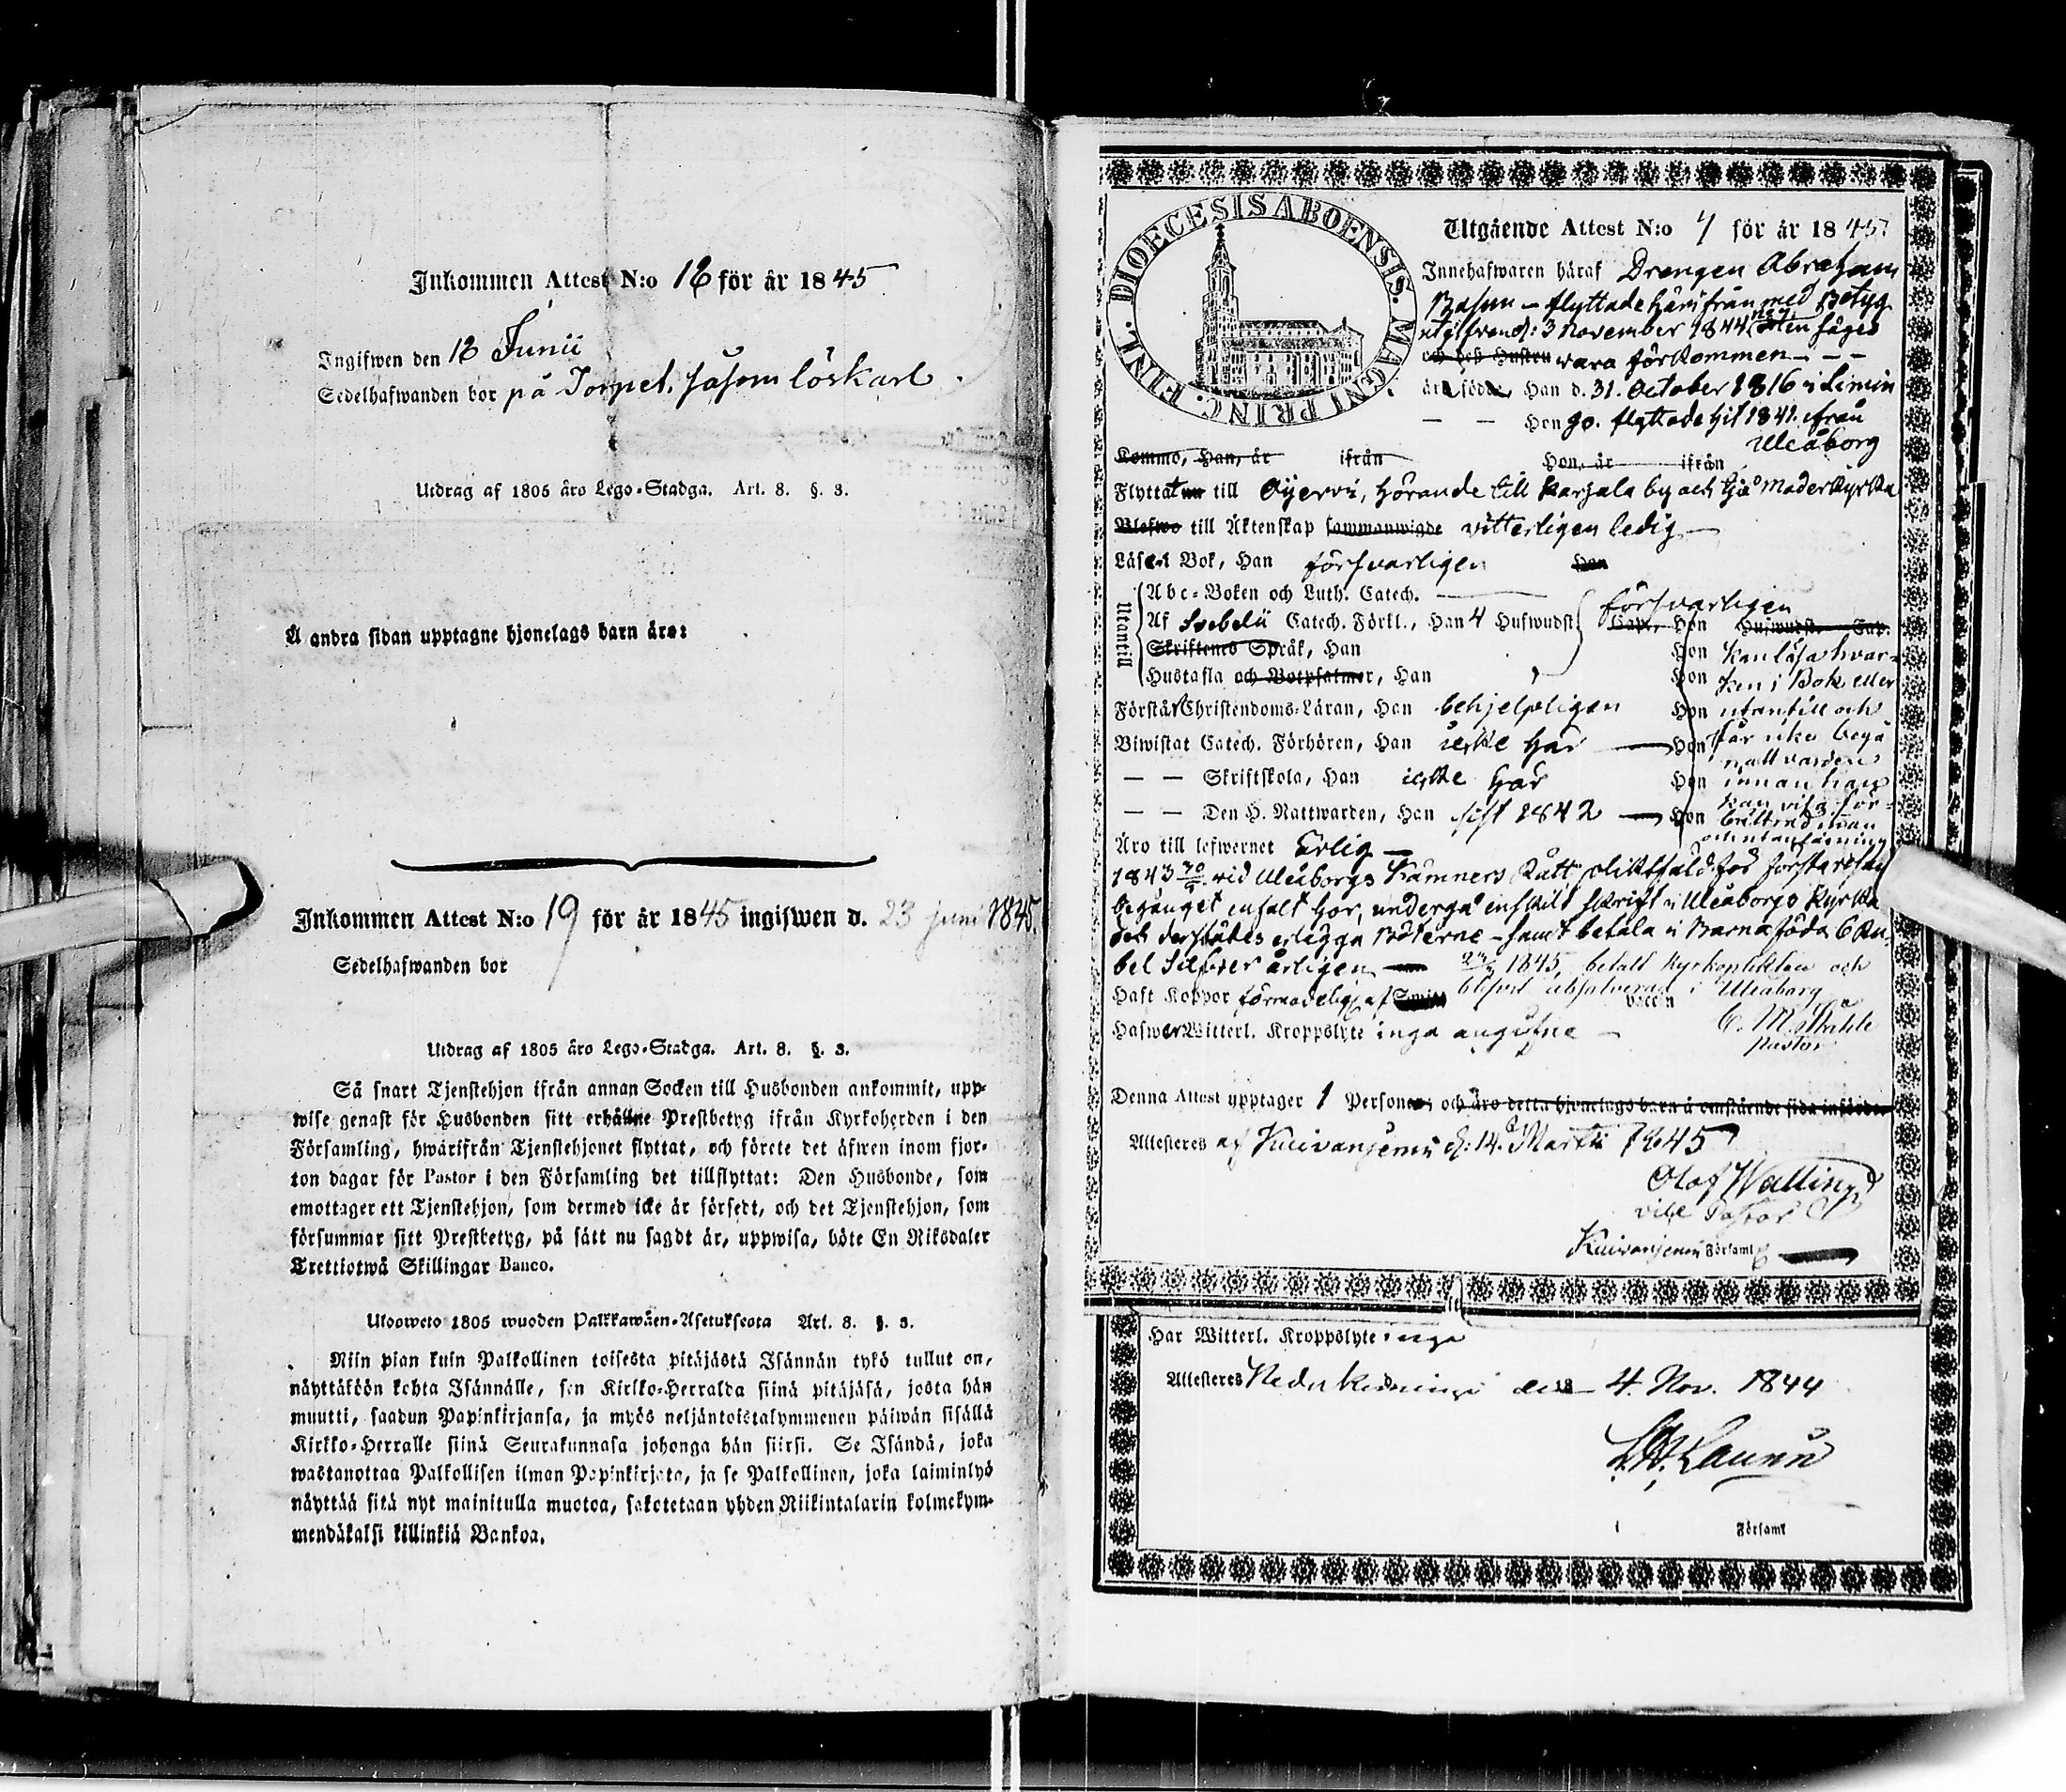 Inkommen Attest N:o 18 för år 1845
Ingifwen den 18 Junii
Sedelhafwanden bor på Torpet, såsom löskarl.
Utdrag af 1805 åro Lego-Stadga. Art. 8. §. 3.
Å andra sidan upptagne hjonelags barn äro:
Inkommen Attest N:o 19 för år 1845 ingifwen d. 23 juni 1845.
Sedelhafwanden bor
Utdrag af 1805 åro Lego-Stadga. Art. 8. §. 3.
Så snart Tjenstehjon ifrån annan Socken till Husbonden ankommit, upp-
wise genast för Husbonden sitt erhållne Prestbetyg ifrån Kyrkoherden i den
Församling, hwarifrån Tjenstehjonet flyttat, och förete det äfwen inom fjor-
ton dagar för Pastor i den Församling det tillflyttat: Den Husbonde, som
emottager ett Tjenstehjon, som dermed icke är försedt, och det Tjenstehjon, som
försummar sitt Prestbetyg, på sätt nu sagdt är, uppwisa, böte En Riksdaler
Trettiotwå Skillingar Banco.
Uloosweto 1805 wuoden Palkkawäen-Asetuksesta Art. 8. §. 3.
Niin pian kuin Palkollinen toisesta pitäjästä Isännän tykö tullut on,
näyttäköön kohta Isännälle, sen Kirkko-Herralda siinä pitäjäsä, josta hän
muutti, saadun Papinkirjansa, ja myös neljäntoistakymmenen päiwän sisällä
Kirkko-Herralle siinä Seurakunnasa johonga hän siirsi. Se Isändä, joka
wastanottaa Palkollisen ilman Papinkirjata, ja se Palkollinen, joka laiminlyö
näyttää sitä nyt mainitulla muotoa, sakotetaan yhden Riikintalarin kolmekym-
mendäkaksi killinkiä Bankoa.
DIOECESIS ABOENSIS. MAGNI PRINC. FINL.
Utgående Attest N:o 7 för år 1845
Innehafwaren häraf Drengen Abraham
flyttade härifrån med Betyg
utgifwen d: 3 November 1844 den säges
och dess Hustru wara förkommen – – –
äro födde, Han d. 31. October 1816 i Limin
— — Hon go. flyttade hit 1841. ifrån
Uleåborg
Komme, Han, år ifrån Hon, år ifrån
Flyttat till Öijervi, hörande till Karjala by och Ijå Moderkyrka
Blefwo till Äktenskap sammanwigde vitterligen ledig
Läser i Bok, Han försvarligen Hon
Utantill
Abc-Boken och Luth. Catech.
Af Svebelii Catech. Förkl., Han 4 Hufwudst. Cap., Hon Hufwudst. Cap.
försvarligen
Skriftenes Språk, Han Hon kan läsa hvar-
Hustafla och Botpsalmer, Han Hon ken i Bok eller
Förstår Christendoms-Läran, Han behjelpligen Hon utantill och
Biwistat Catech. Förhören, Han icke här Hon får icke begå
nattvarden
— — Skriftskola, Han icke här Hon innan han
— — Den H. Nattwarden, Han sist 1842 Hon
Äro till lefwernet Ärlig
1843 30/5 vid Uleåborgs Kämners Rätt pliktfäld för första resan
begånget enfalt hor, undergå enskilt skrift i Uleåborgs Kyrka
och derstädes erlägga Böterne – samt betala i Barnaföda 6 Ru-
bel Silfver årligen 1845, betalt Kyrkoplikten och
blifvit absolverad i Uleåborg
Haft Koppor förmodeligen af vaccin
C. M. Stråhle
Pastor
Hafwer Witterl. Kroppslyte inga angifne
Denna Attest upptager 1 Personer och äro detta hjonelags barn å omstående sida införde
Attesteres af Kuivaniemi d: 14. Martii 1845
Olof Wallin
vice Pastor
Kuivaniemi Församl
Har Witterl. Kroppslyte inga
Attesteres den 4. Nov. 1844
Församl